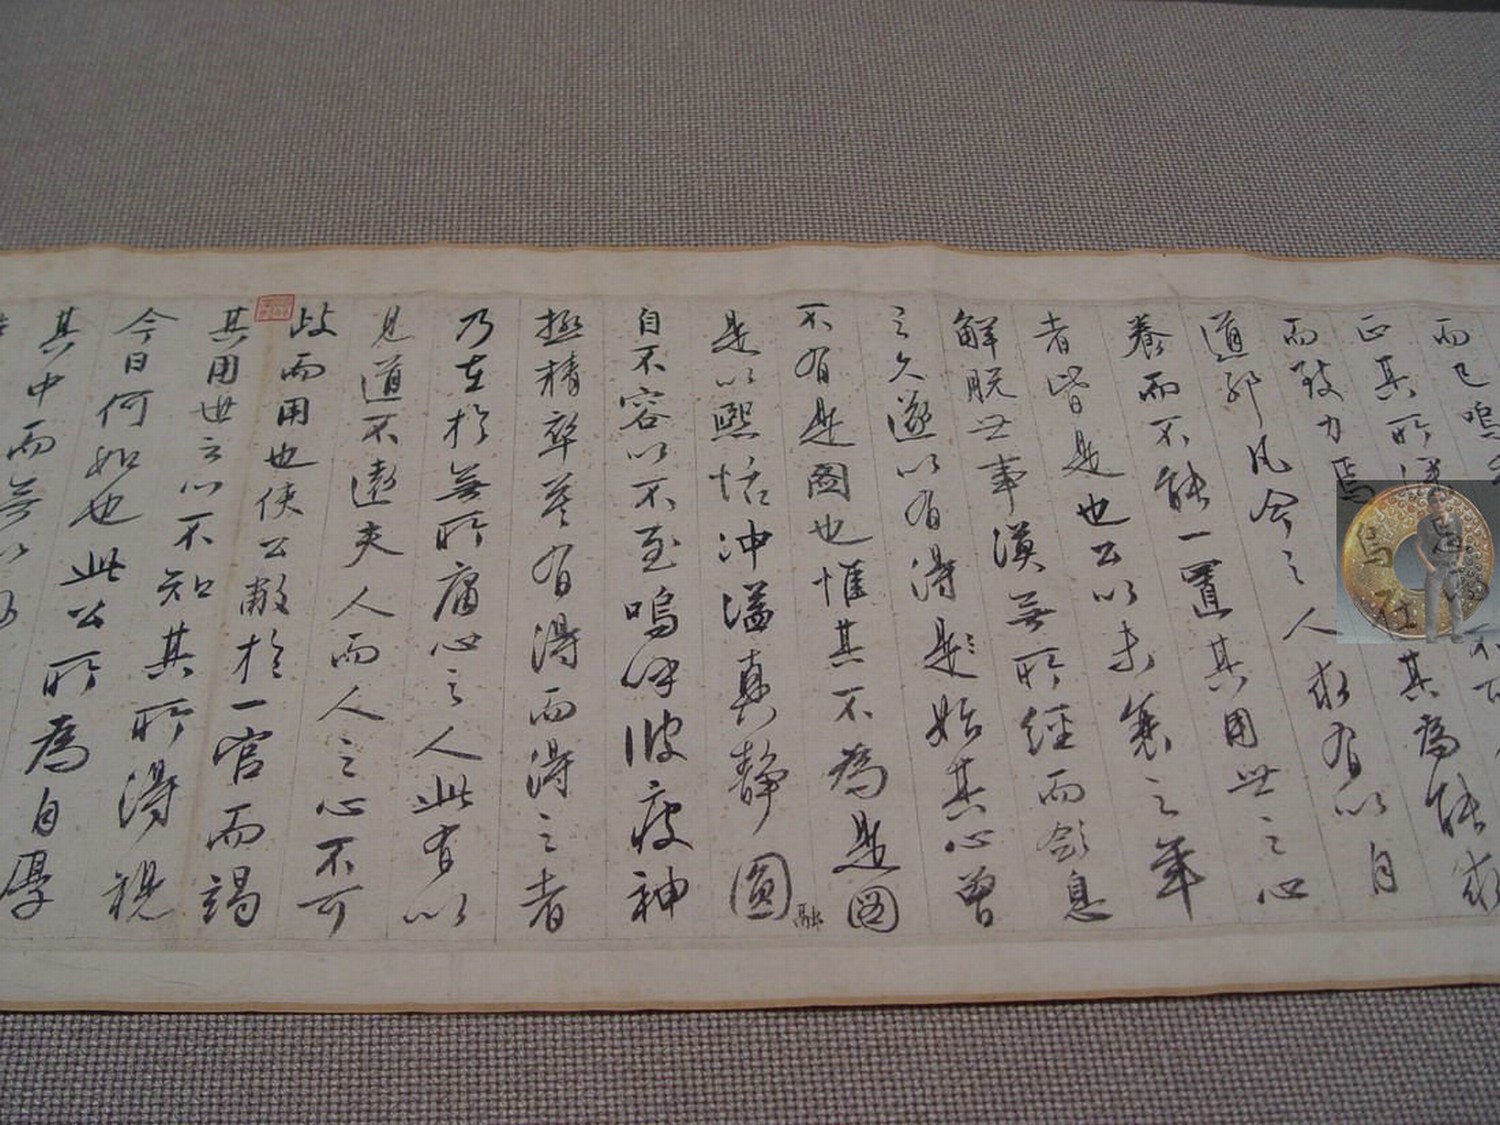 而已嗚
正其所其為能求
而致力焉人求有以自
道耶凡今之
養而不能一置其用世之心
者皆是也公以未衰之年
解脫世事漠無所經而歛息
之久遂以有得是始其心曾
不有是圖也惟其不為是圖
是以熙恬沖溢真靜圓融
自不容以不至嗚呼彼疲神
極精卒莫有得而得之者
乃在於無所庸心之人此有以
見道不遠夫人而人之心不可
歧而用也使公敝於一官而竭
其用世之心不知其所得視
今日何如也此公所為自厚
其中而無以